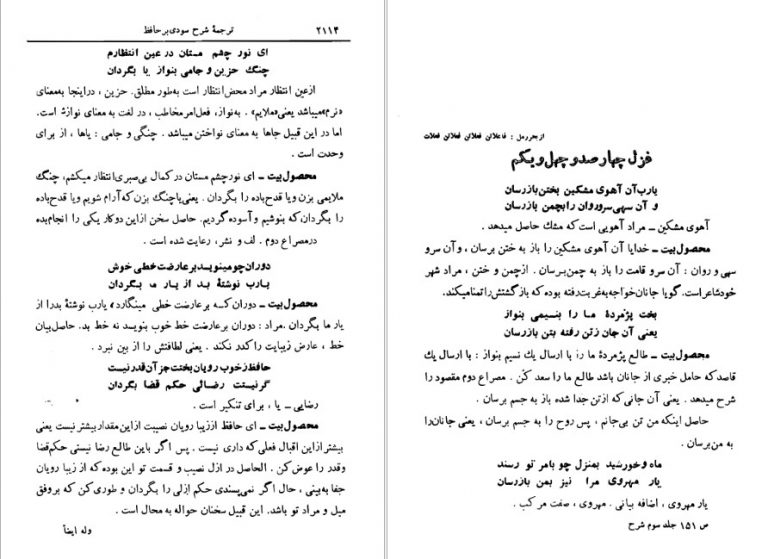 ۲۱۱۴ ترجمهٔ شرح سودی بر حافظ
ای نور چشم مستان در عین انتظارم
چنگ حزین و جامی بنواز یا بگردان
ازعین انتظار مراد محض‌انتظار است به‌طور مطلق. حزین ، دراینجا به‌معنای
«نرم» میباشد یعنی «ملایم» . به‌نواز، فعل‌امر مخاطب ، در لغت به معنای نوازش است.
اما در این قبیل جاها به معنای نواختن میباشد . چنگی و جامی : یاها ، از برای
وحدت است .
محصول‌بیت ـ ای نورچشم مستان درکمال بی‌صبری‌انتظار میکشم، چنگ
ملایمی بزن ویا قدح‌باده را بگردان . یعنی‌یاچنگ بزن که‌آرام شویم ویا قدح‌باده
را بگردان که بنوشیم و آسوده گردیم. حاصل سخن ازاین دوکار یکی را انجام‌بده
درمصراع دوم . لف و نشر ، رعایت شده است .
دوران چو مینویسد بر عارضت خطی خوش
یارب نوشتهٔ بد از یار ما بگردان
محصول‌بیت ـ دوران که بر عارضت خطی مینگارد» یارب نوشتهٔ بدرا از
یار ما بگردان .مراد : دوران برعارضت خط خوب بنویسد نه خط بد. حاصل‌بیان
خط ، عارض زیبایت راکدر نکند . یعنی لطافتش را از بین نبرد .
حافظ ز خوب رویان بختت جز آن قدر نیست
گر نیستت رضائی حکم قضا بگردان
رضایی ـ یا ، برای تنکیر است .
محصول‌بیت ـ ای حافظ اززیبا رویان نصیبت ازاین‌مقداربیشتر نیست یعنی
بیشتر ازاین اقبال فعلی‌که داری نیست . پس اگر باین طالع رضا نیستی حکم‌قضا
وقدر را عوض‌کن . الحاصل در ازل نصیب و قسمت تو این بوده که از زیبا رویان
جفا به‌بینی ، حال اگر نمی‌پسندی حکم ازلی را بگردان و طوری کن که بروفق
میل و مراد تو باشد. این قبیل سخنان حواله به محال است .
وله ایضاً
ازبحررمل : فاعلاتن فعلاتن فعلاتن فعلات
غزل چهارصد و چهل و یکم
یارب آن آهوی مشکین بختن بازرسان
و آن سهی سرو روان را بچمن بازرسان
آهوی مشکین ـ مراد آهویی است که مشك حاصل میدهد .
محصول‌بیت ـ خدایا آن آهوی مشکین را باز به ختن برسان ، وآن سرو
سهی و روان : آن سرو قامت را باز به چمن‌برسان . ازچمن و ختن ، مراد شهر
خودشاعراست. گویا جانان‌خواجه‌به‌غربت‌رفته بوده که بازگشتش‌راتمنامیکند.
بخت پژمردهٔ ما را بنسیمی بنواز
یعنی آن جان ز تن رفته بتن بازرسان
محصول‌بیت ـ طالع پژمردهٔ ما را با ارسال یك نسیم بنواز : با ارسال یك
قاصد که حامل خبری از جانان باشد طالع ما را سعد کن . مصراع دوم مقصود را
شرح میدهد . یعنی آن جانی که ازتن جدا شده باز به جسم برسان .
حاصل اینکه من تن بی‌جانم ، پس روح را به جسم برسان ، یعنی جانان‌را
به من‌برسان .
ماه و خورشید بمنزل چو بامر تو رسند
یار مهروی مرا نیز بمن بازرسان
یار مهروی ، اضافه بیانی . مهروی ، صفت مرکب .
ص ۱۵۱ جلد سوم شرح